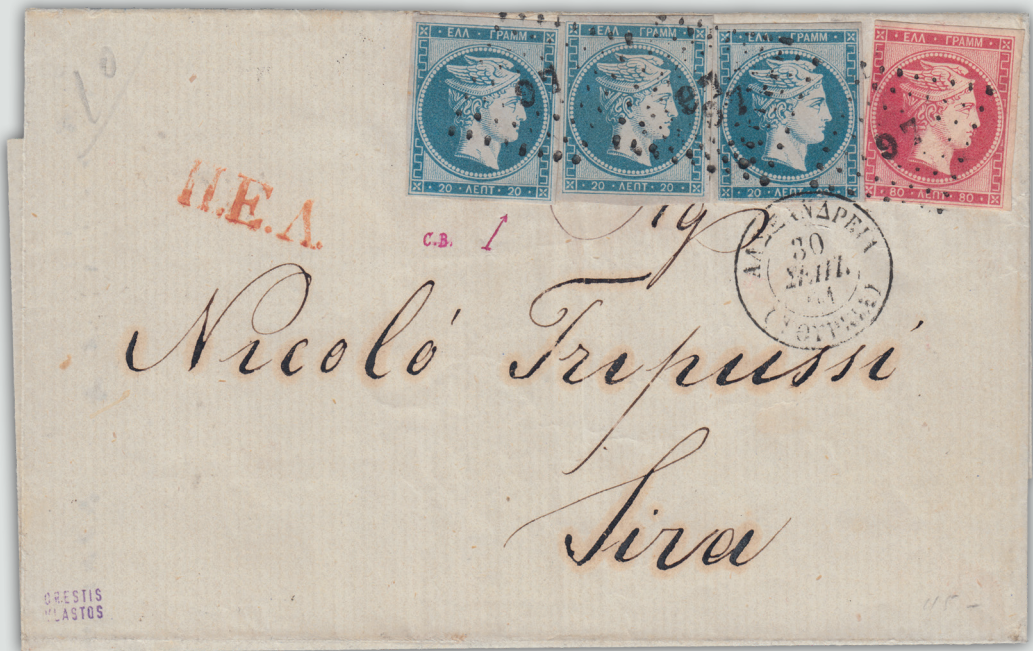 ΕΛΛ ΓΡΑΜΜ
20 ΛΕΠΤ 20
ΕΛΛ ΓΡΑΜΜ
20 ΛΕΠΤ 20
ΕΛΛ ΓΡΑΜΜ
20 ΛΕΠΤ 20
ΕΛΛ ΓΡΑΜΜ
80 ΛΕΠΤ 80
97
97
97
97
Π.Ε.Λ.
C.B. 1
Sig
ΑΛΕΞΑΝΔΡΕΙΑ
30
ΣΕΠΤ.
(ΤΟΥΡΚΙΑ)
Nicoló Tripussi
Sira
ORESTIS
VLASTOS